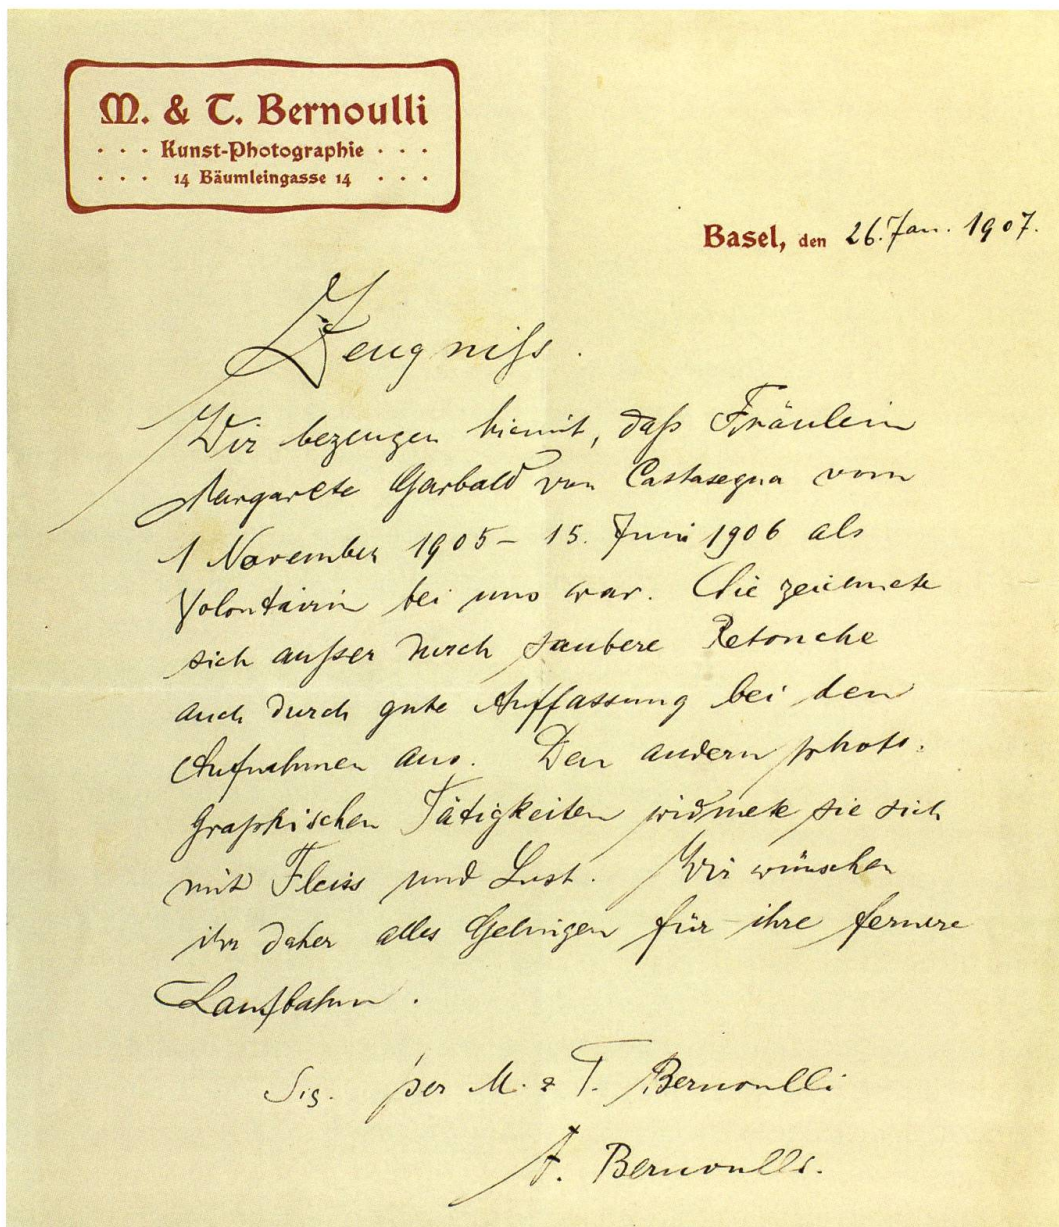 M. & T. Bernoulli
· · · Kunst-Photographie · · ·
· · · 14 Bäumleingasse 14 · · ·
Basel, den 26. Jan. 1907.
Zeugniss.
Wir bezeugen hiemit, daß Fräulein
Margarete Garbald von Castasegna vom
1 November 1905 – 15. Juni 1906 als
Volontairin bei uns war. Sie zeichnete
sich außer durch saubere Retouche
auch durch gute Auffassung bei den
Aufnahmen aus. Den andern photo-
graphischen Tätigkeiten widmete sie sich
mit Fleiss und Lust. Wir wünschen
ihr daher alles Gelingen für ihre fernere
Laufbahn.
Sig. per M. & T. Bernoulli
A. Bernoulli.